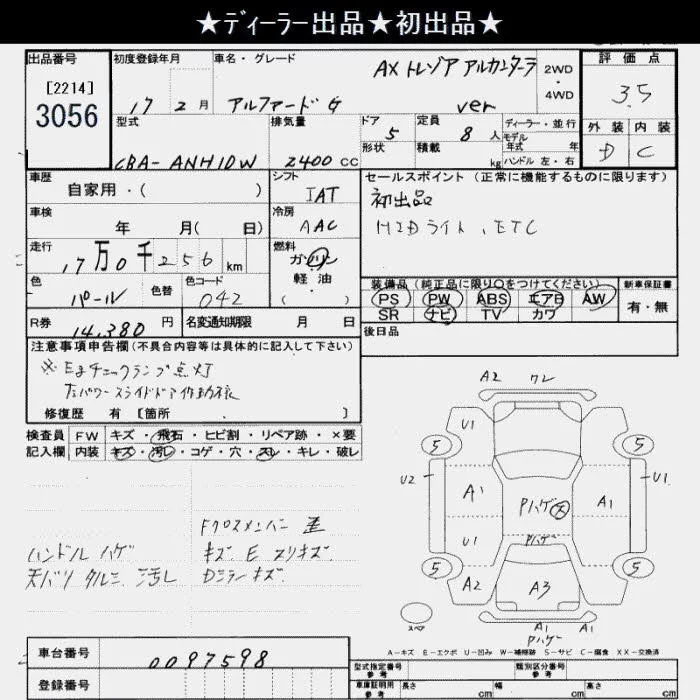 ★ディーラー出品★初出品★
出品番号
[2214]
3056
初度登録年月
17 2月
車名・グレード
アルファードG
AX トレゾア アルカンターラ
ver
2WD
・
4WD
評価点
3.5
外装 内装
D C
型式
CBA-ANH10W
排気量
2400 CC
ドア
5
形状
定員
8 人
積載
kg
ディーラー・並行
モデル
年式 年
ハンドル 左・右
車歴
自家用・( )
シフト
IAT
車検
年 月( 日)
冷房
AAC
走行
17万0千256 km
燃料
ガソリン
軽油
( ・ )
色
パール
色替
色コード
042
R券
14,380 円
名変通知期限 月 日
セールスポイント (正常に機能するものに限ります)
初出品
HIDライト、ETC
装備品 (純正品に限り○をつけてください)
PS PW ABS エアB AW
SR ナビ TV カワ
新車保証書
有・無
後日品
注意事項申告欄 (不具合内容等は具体的に記入して下さい)
※Egチェックランプ点灯
左パワースライドドア作動不良
修復歴 有 [箇所 . ]
検査員 FW キズ・飛石・ヒビ割・リペア跡・×要
記入欄 内装 キズ・汚レ・コゲ・穴・スレ・キレ・破レ
ハンドル ハゲ
天バリ タルミ 汚レ
Fクロスメンバー 歪
キズ E スリキズ
Dミラーキズ
A2 ワレ
U1
5 5
U2 U1
A1 Pハゲ 大 A1
U1 Pハゲ
5 5
A2 A3
A1 A1
Pハゲ
スペア
A-キズ E-エクボ U-凹み W-補修跡 S-サビ C-腐食 XX-交換済
車台番号
0097598
登録番号
型式指定番号
参考
類別区分番号
参考
車庫証明用
参考
長さ cm 幅 cm 高さ cm